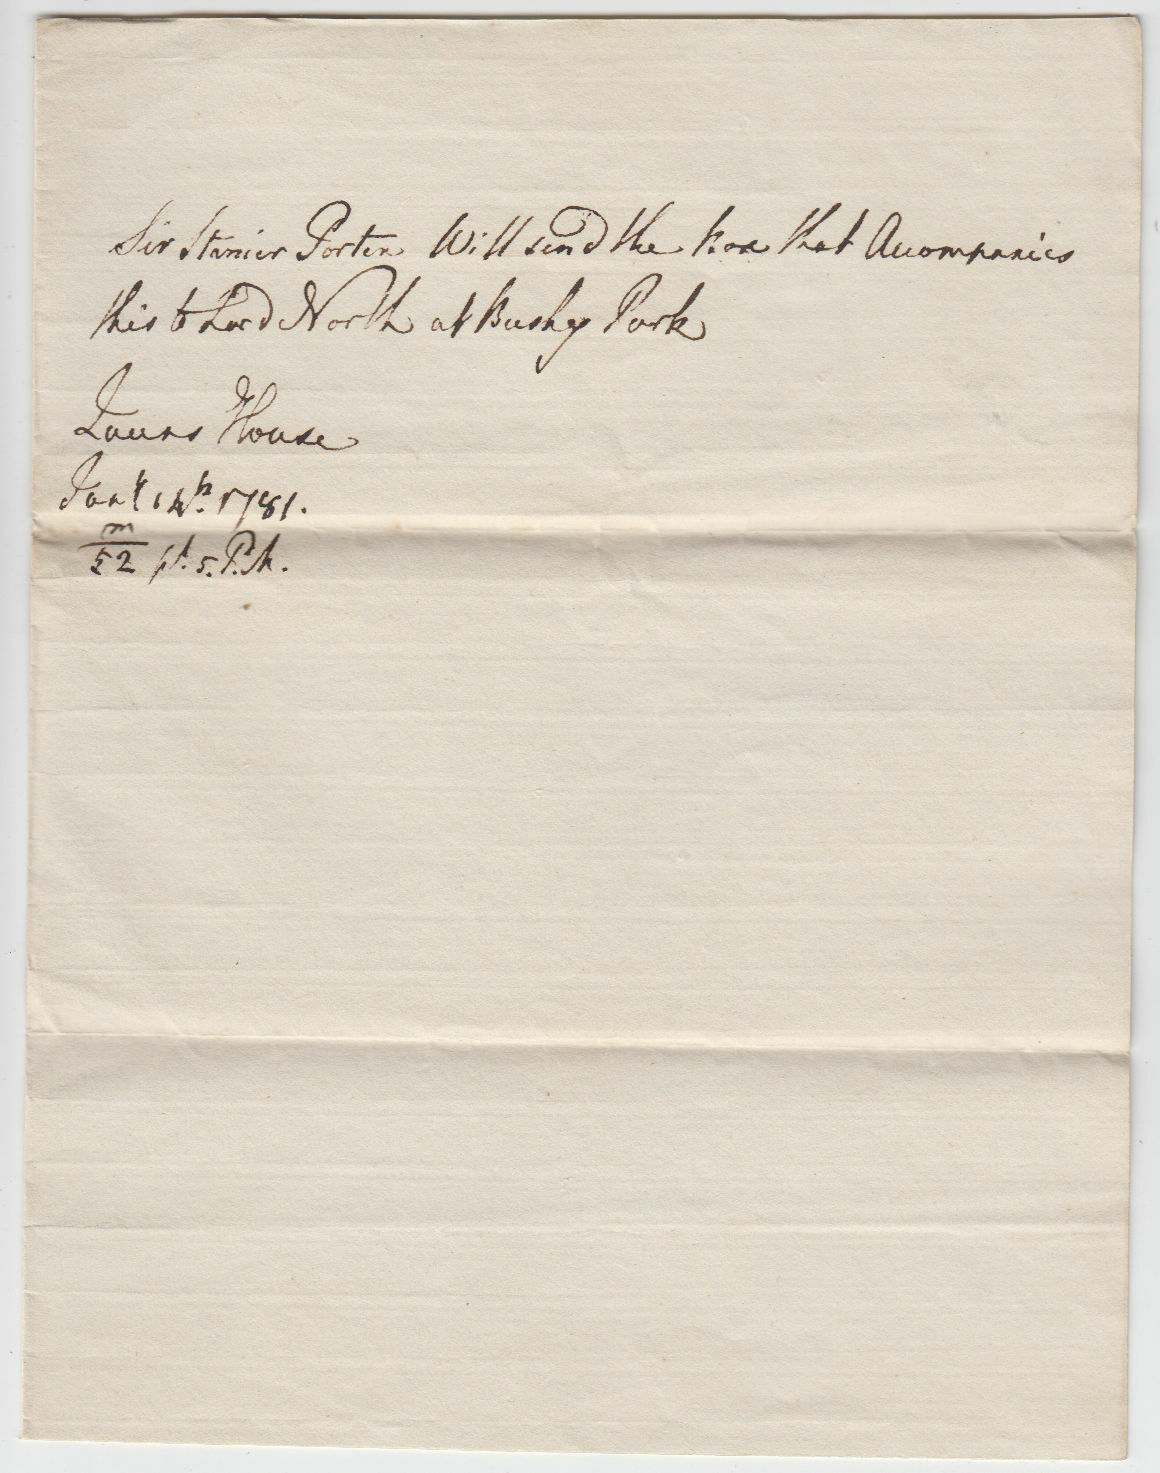 Sir Stanier Porten Will send the Box that Acompanies
this to Lord North at Bushy Park
Queens House
Jany 14th. 1781.
m
52 pt. 5. P.M.